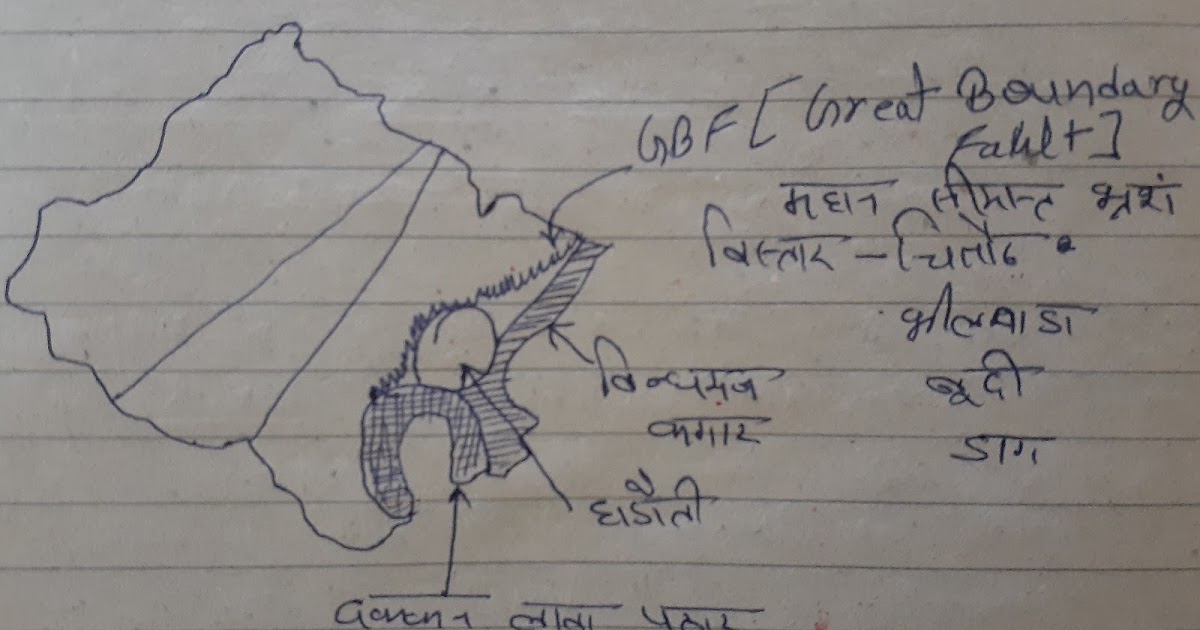 GBF [Great Boundary
Fault]
महान सीमान्त भ्रशं
विस्तार - चितौढ
भीलवाडा
बूदी
डाग
विन्धयन
कगार
हाडौती
दक्कन लावा पठार